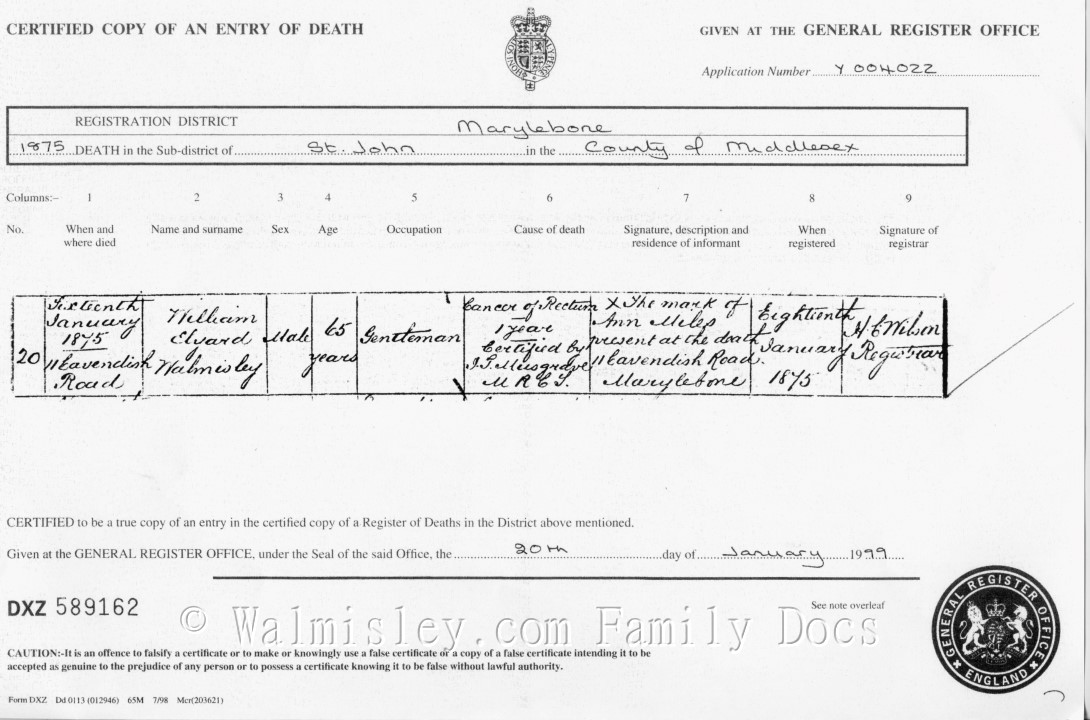 CERTIFIED COPY OF AN ENTRY OF DEATH
GIVEN AT THE GENERAL REGISTER OFFICE
Application Number Y 004022
REGISTRATION DISTRICT Marylebone
1875 DEATH in the Sub-district of St. John in the County of Middlesex
Columns:- 1 2 3 4 5 6 7 8 9
No. When and where died Name and surname Sex Age Occupation Cause of death Signature, description and residence of informant When registered Signature of registrar
20
Sixteenth
January
1875
11 Cavendish
Road
William
Elyard
Walmisley
Male
65
years
Gentleman
Cancer of Rectum
1 year
Certified by
Musgrave
X The mark of
Ann Miles
present at the death
11 Cavendish Road
Marylebone
Eighteenth
January
1875
H E Wilson
Registrar
CERTIFIED to be a true copy of an entry in the certified copy of a Register of Deaths in the District above mentioned.
Given at the GENERAL REGISTER OFFICE, under the Seal of the said Office, the 20th day of January 1999
DXZ 589162
See note overleaf
© Walmisley.com Family Docs
CAUTION:-It is an offence to falsify a certificate or to make or knowingly use a false certificate or a copy of a false certificate intending it to be
accepted as genuine to the prejudice of any person or to possess a certificate knowing it to be false without lawful authority.
Form DXZ Dd 0113 (012946) 65M 7/98 Mcr(203621)
GENERAL REGISTER OFFICE
ENGLAND